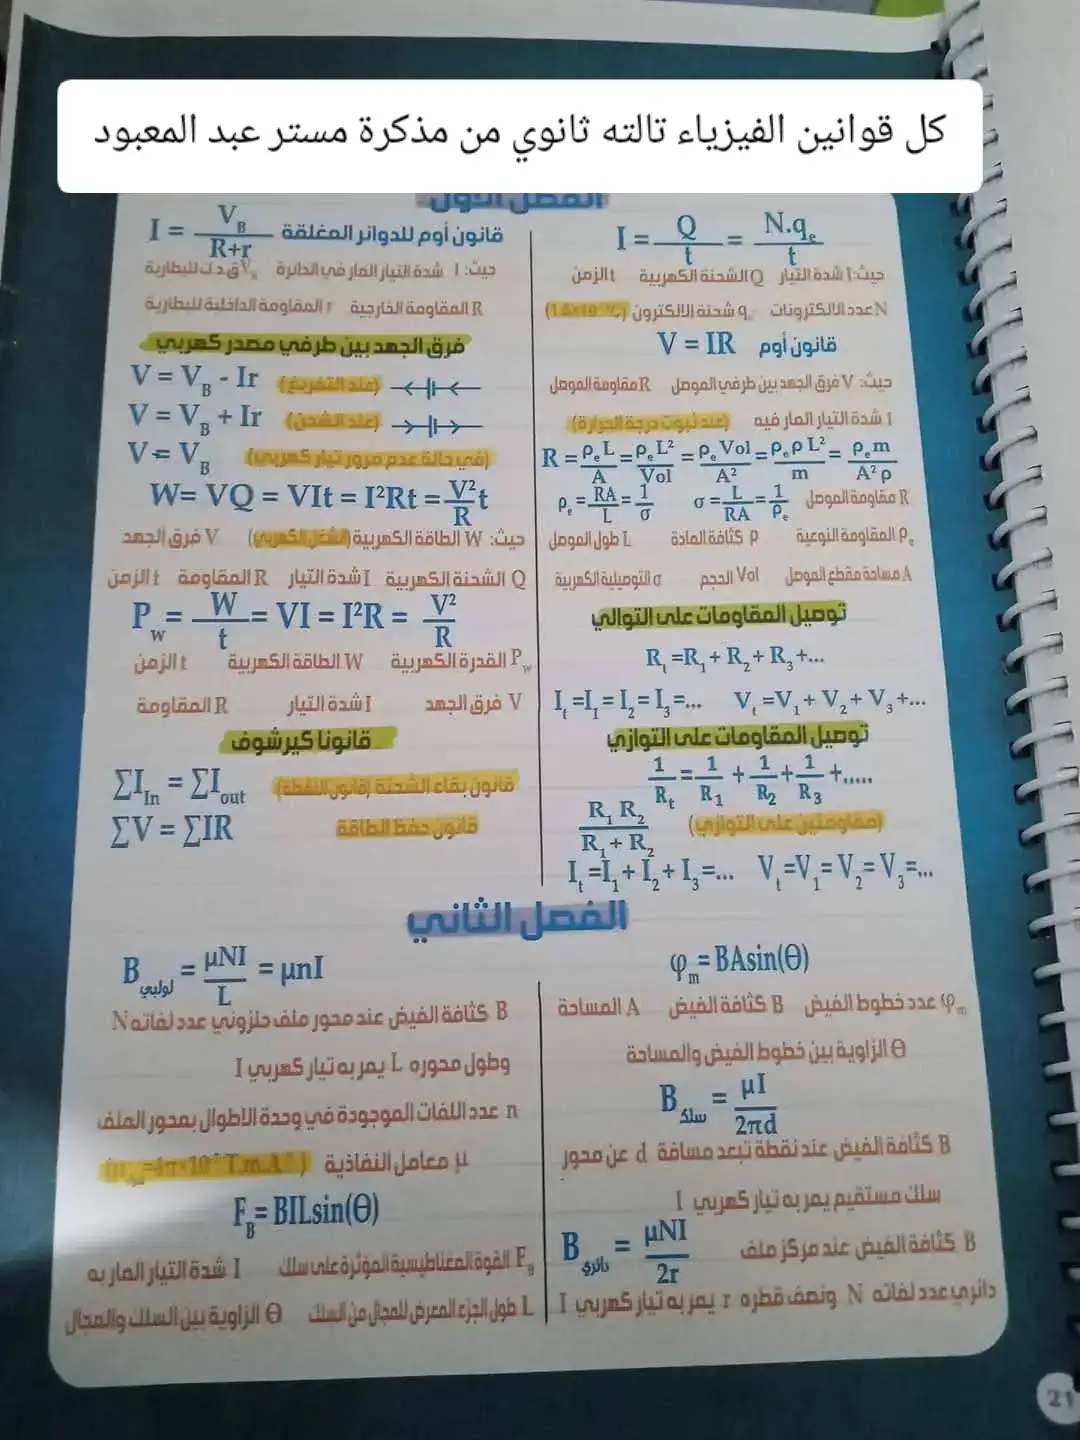 كل قوانين الفيزياء تالته ثانوي من مذكرة مستر عبد المعبود
الفصل الأول
I = Q/t = N.qₑ/t
حيث: I شدة التيار Q الشحنة الكهربية t الزمن
N عدد الالكترونات qₑ شحنة الالكترون
قانون أوم V = IR
حيث: V فرق الجهد بين طرفي الموصل R مقاومة الموصل
I شدة التيار المار فيه (عند ثبوت درجة الحرارة)
R = ρₑL/A = ρₑL²/Vol = ρₑVol/A² = ρₑρL²/m = ρₑm/A²ρ
ρₑ = RA/L = 1/σ σ = L/RA = 1/ρₑ R مقاومة الموصل
ρₑ المقاومة النوعية ρ كثافة المادة L طول الموصل
A مساحة مقطع الموصل Vol الحجم σ التوصيلية الكهربية
توصيل المقاومات على التوالي
Rₜ =R₁+ R₂+ R₃+...
Iₜ =I₁= I₂= I₃=... Vₜ =V₁+ V₂+ V₃+...
توصيل المقاومات على التوازي
1/Rₜ = 1/R₁ + 1/R₂ + 1/R₃ +.....
R₁ R₂/R₁+ R₂ (مقاومتين على التوازي)
Iₜ =I₁+ I₂+ I₃=... Vₜ=V₁= V₂= V₃=...
I = V_B/R+r قانون أوم للدوائر المغلقة
حيث: I شدة التيار المار في الدائرة V_B ق د ك للبطارية
R المقاومة الخارجية r المقاومة الداخلية للبطارية
فرق الجهد بين طرفي مصدر كهربي
V = V_B - Ir (عند التفريغ)
V = V_B + Ir (عند الشحن)
V = V_B (في حالة عدم مرور تيار كهربي)
W= VQ = VIt = I²Rt = V²/R t
حيث: W الطاقة الكهربية (الشغل الكهربي) V فرق الجهد
Q الشحنة الكهربية I شدة التيار R المقاومة t الزمن
P_w = W/t = VI = I²R = V²/R
P_w القدرة الكهربية W الطاقة الكهربية t الزمن
V فرق الجهد I شدة التيار R المقاومة
قانونا كيرشوف
∑I_In = ∑I_out قانون بقاء الشحنة (قانون النقطة)
∑V = ∑IR قانون حفظ الطاقة
الفصل الثاني
φ_m = BAsin(Θ)
φ_m عدد خطوط الفيض B كثافة الفيض A المساحة
Θ الزاوية بين خطوط الفيض والمساحة
B سلك = μI/2πd
B كثافة الفيض عند نقطة تبعد مسافة d عن محور
سلك مستقيم يمر به تيار كهربي I
B دائري = μNI/2r B كثافة الفيض عند مركز ملف
دائري عدد لفاته N ونصف قطره r يمر به تيار كهربي I
B لولبي = μNI/L = μnI
B كثافة الفيض عند محور ملف حلزوني عدد لفاته N
وطول محوره L يمر به تيار كهربي I
n عدد اللفات الموجودة في وحدة الاطوال بمحور الملف
μ معامل النفاذية
F_B = BILsin(Θ)
F_B القوة المغناطيسية المؤثرة على سلك I شدة التيار المار به
L طول الجزء المعرض للمجال من السلك Θ الزاوية بين السلك والمجال
21